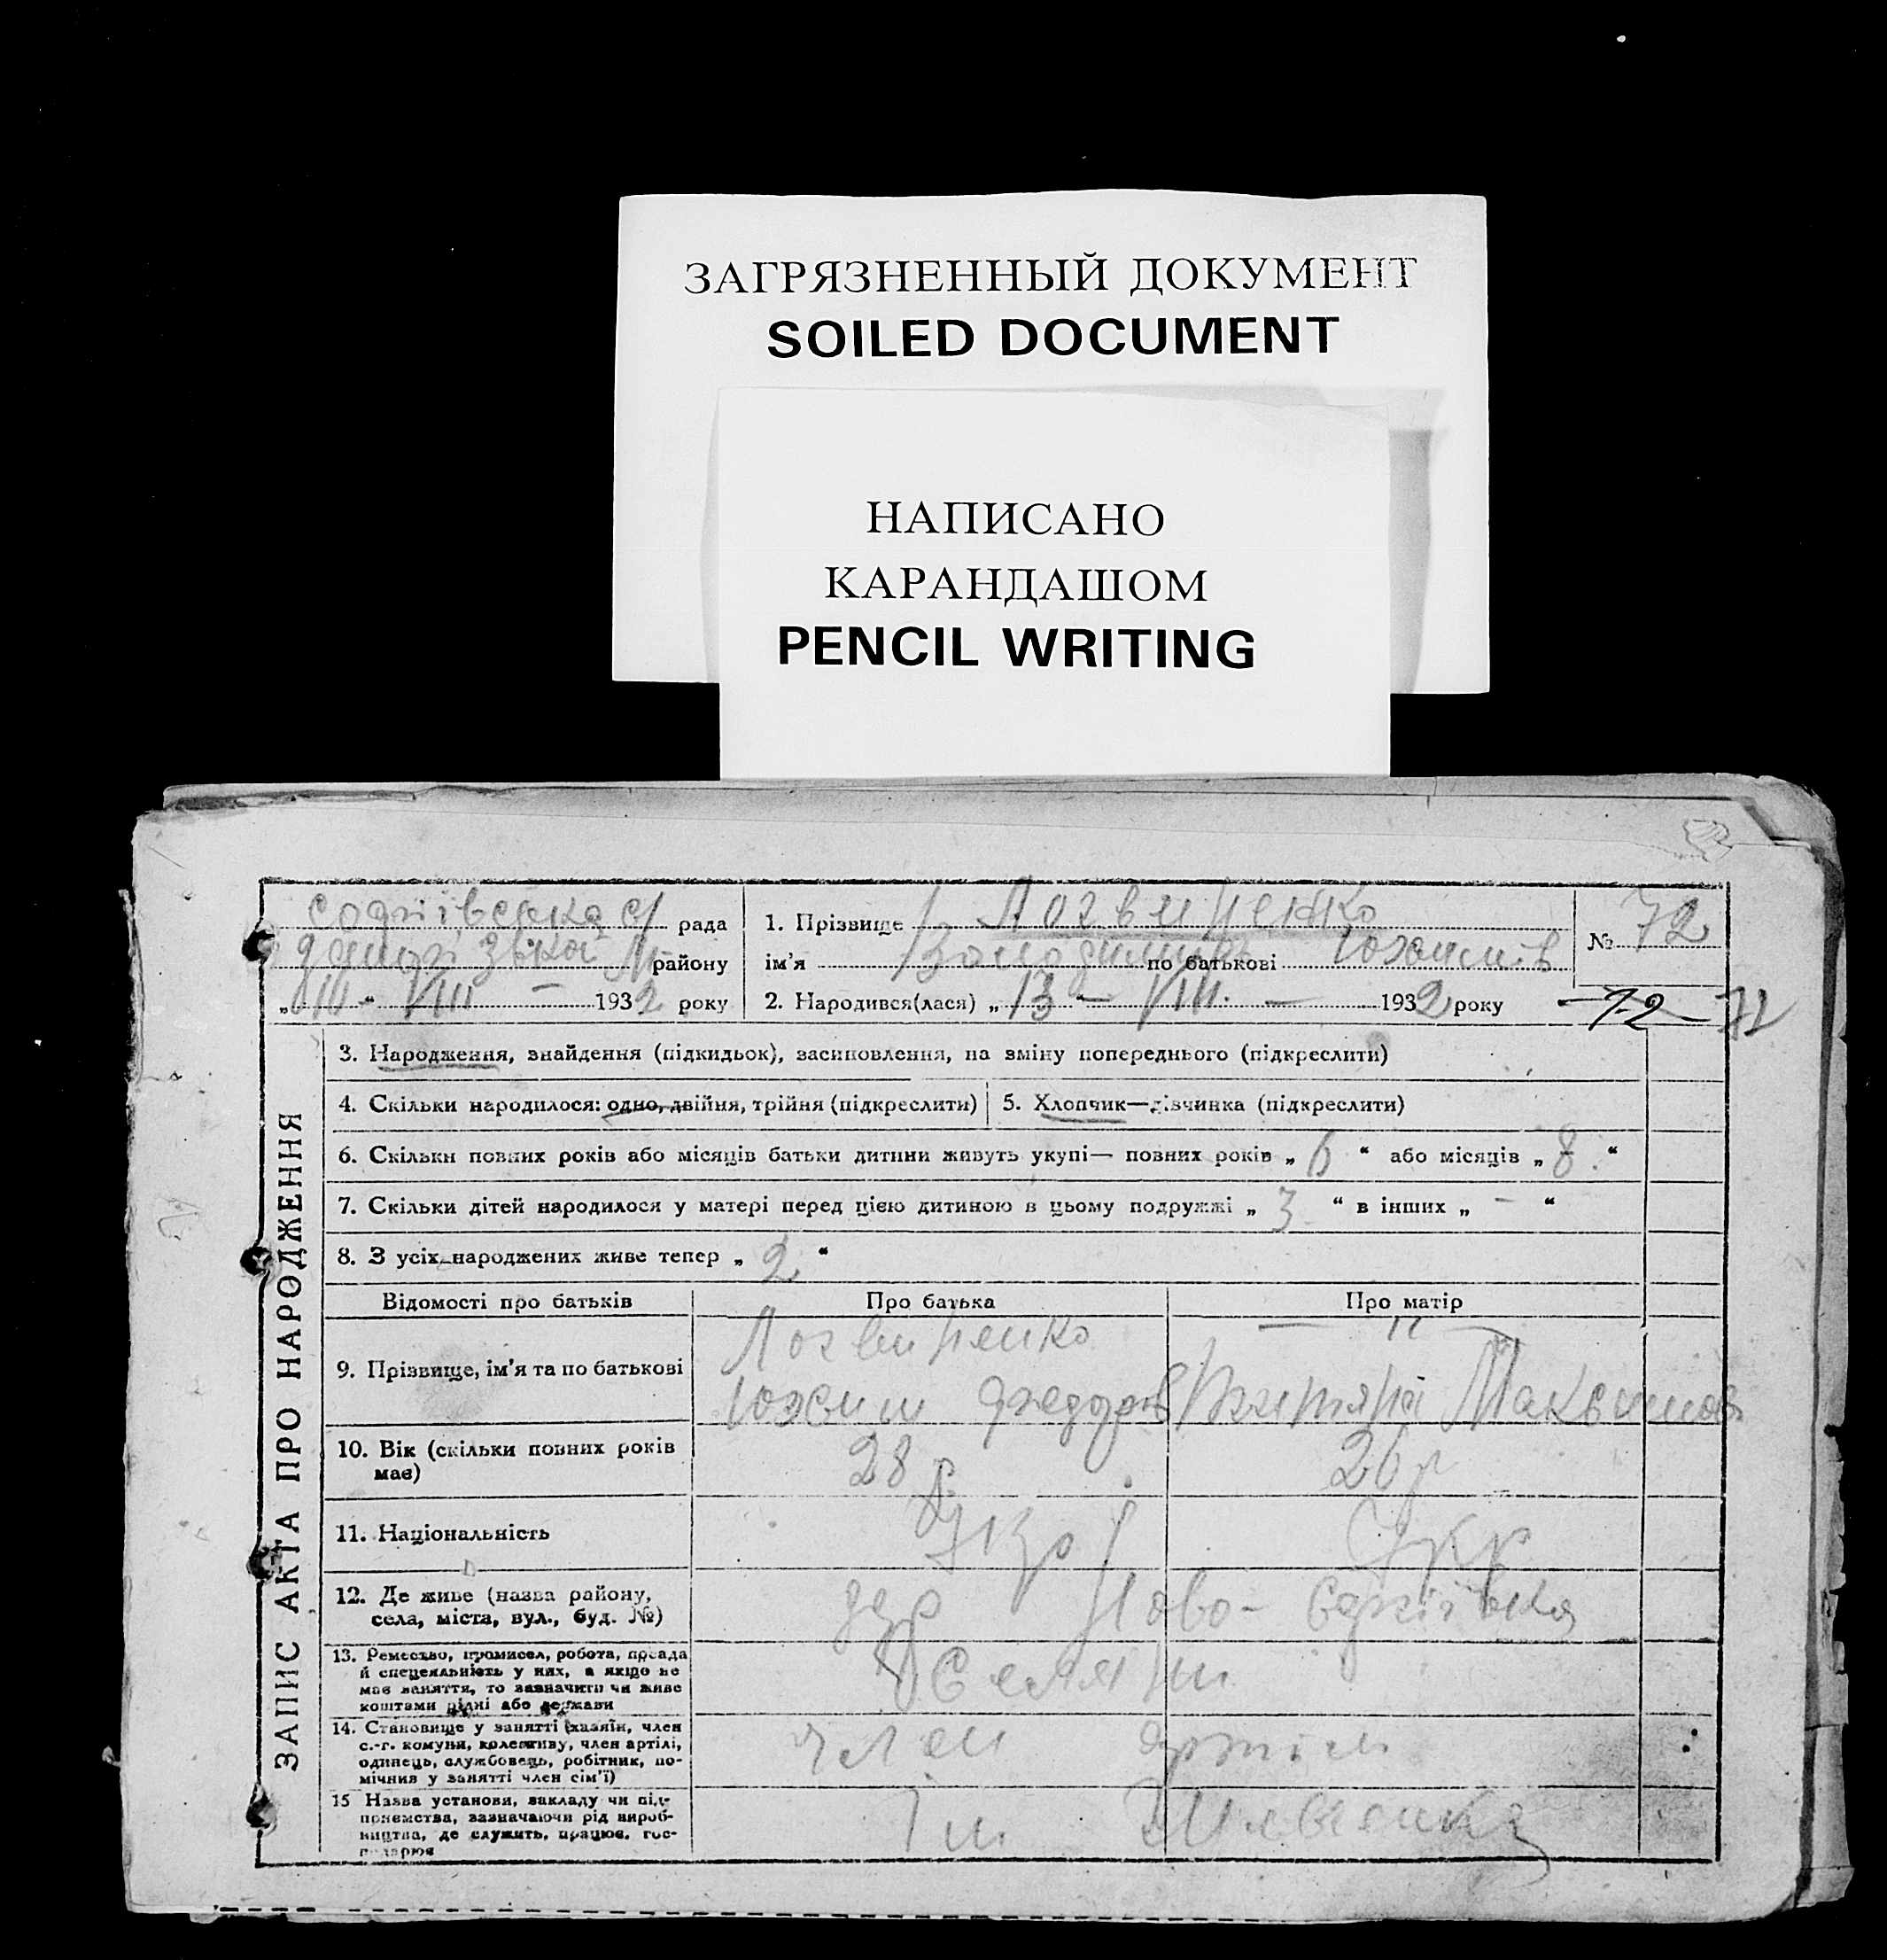 ЗАГРЯЗНЕННЫЙ ДОКУМЕНТ
SOILED DOCUMENT
НАПИСАНО
КАРАНДАШОМ
PENCIL WRITING
ЗАПИС АКТА ПРО НАРОДЖЕННЯ
рада
району
VIII – 1932 року
1. Прізвище Логвиненко
ім'я Володимир по батькові
2. Народився(лася) „13“ – VIII. – 1932 року
№ 72
– 72 – 72
3. Народження, знайдення (підкидьок), засиновлення, на зміну попереднього (підкреслити)
4. Скільки народилося: одно, двійня, трійня (підкреслити) 5. Хлопчик—дівчинка (підкреслити)
6. Скільки повних років або місяців батьки дитини живуть укупі— повних років „ 6 “ або місяців „ 8. “
7. Скільки дітей народилося у матері перед цією дитиною в цьому подружжі „ 3 “ в інших „ – “
8. З усіх народжених живе тепер „ 2 “
Відомості про батьків Про батька Про матір
9. Прізвище, ім'я та по батькові Логвиненко — " —
10. Вік (скільки повних років 28 р. 26 р
має)
11. Національність Укр Укр
12. Де живе (назва району,
села, міста, вул., буд. №) Ново-
13. Ремество, промисел, робота, посада
й спецеяльність у них, а якщо не
має заняття, то зазначити чи живе
коштами рідні або держави Селяни
14. Становище у занятті (хазяїн, член
с.-г. комуни, колективу, член артілі,
одинець, службовець, робітник, по-
мічник у занятті член сім'ї) член артіли
15 Назва установи, закладу чи під-
приємства, зазначаючи рід вироб-
ництва, де служить, працює, гос-
подарює Ім Шевченка